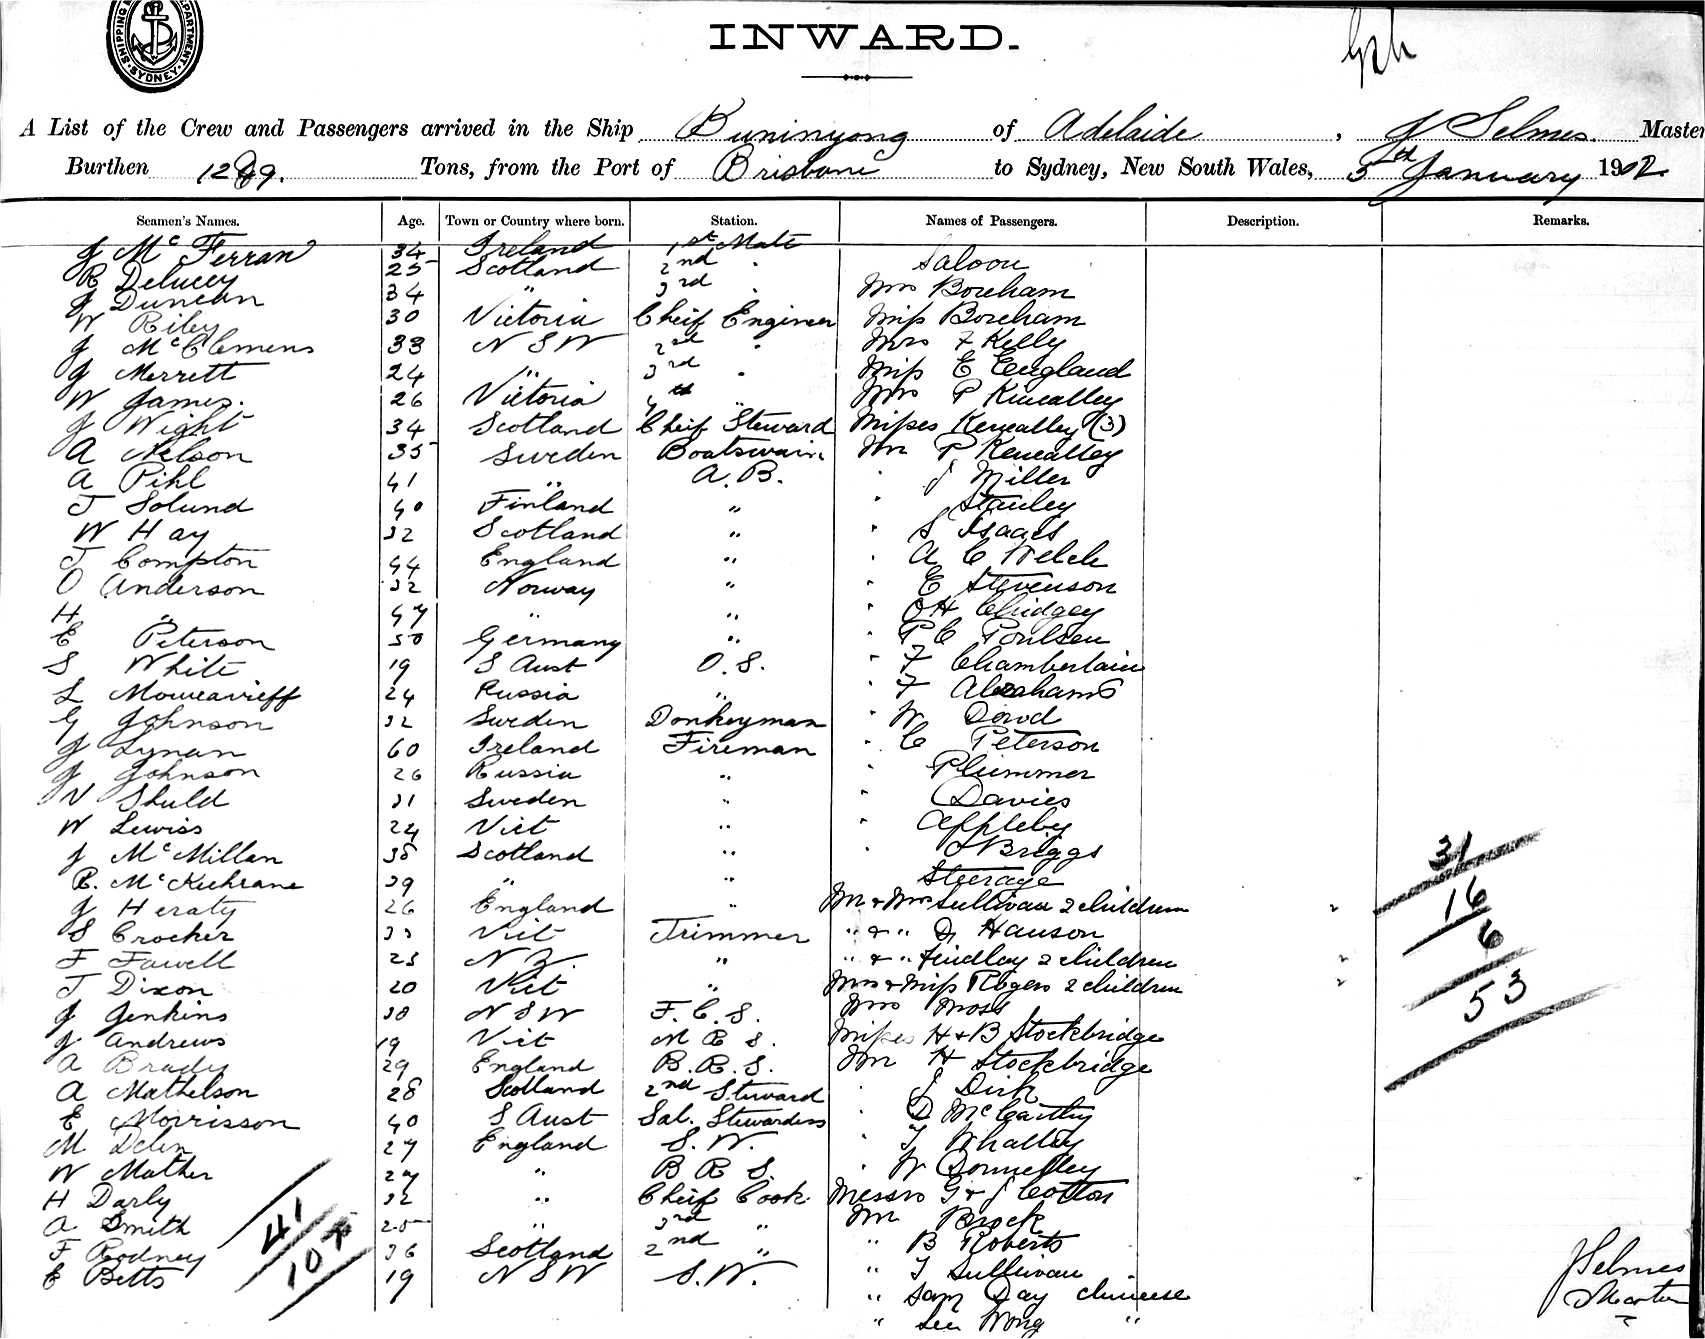 SHIPPING DEPARTMENT. SYDNEY.
INWARD.
A List of the Crew and Passengers arrived in the Ship Buninyong of Adelaide, J Selmes. Master
Burthen 1289. Tons, from the Port of Brisbane to Sydney, New South Wales, 5th January 1902
Seamen's Names. Age. Town or Country where born. Station. Names of Passengers. Description. Remarks.
J McFerran 34 Ireland 1st Mate
R Delucey 25 Scotland 2nd " Saloon
J Duncan 34 " 3rd " Mrs Boreham
W Riley 30 Victoria Cheif Engineer Miss Boreham
J McClemens 33 N S W 2nd " Mrs F Kelly
J Merrett 24 " 3rd " Miss E England
W James. 26 Victoria 4th " Mrs P Kenealley
J Wight 34 Scotland Cheif Steward Misses Kenealley (3)
A Nelson 35 Sweden Boatswain Mr P Kenealley
A Pihl 41 " A.B. " J Miller
J Solund 40 Finland " " Stanley
W Hay 32 Scotland " " S Isaacs
J Compton 44 England " " A C Welch
O Anderson 32 Norway " " E Stevenson
H " 47 " " " C H Chidgey
E Peterson 50 Germany " " P C Poulsen
S White 19 S Aust O.S. " F Chamberlain
L 24 Russia " " F Abrahams
G Johnson 32 Sweden Donkeyman " W Dowd
J Lynan 60 Ireland Fireman " C Peterson
J Johnson 26 Russia " " Plummer
N Skuld 31 Sweden " " Davies
W Lewiss 24 Vict " " Appleby
J McMillan 38 Scotland " " J Briggs
R. McKechrane 29 " " Steerage
J Heraty 26 England " Mr & Mrs Sullivan 2 children
S Crocker 33 Vict Trimmer " & " D Hanson
F Fawell 23 N Z. " " & " Findlay 2 children
J Dixon 20 Vict " Mrs & Miss Rogers 2 children
J Jenkins 38 N S W F.C.S. Mrs Moss
J Andrews 19 Vict M R S. Misses H & B Stockbridge
A Brady 29 England B.R.S. Mr H Stockbridge
A Mathelson 28 Scotland 2nd Steward " J Dick
E Morrisson 40 S Aust Sal. Stewardess " D McCarthy
M Delin 27 England S.W. " T Whalley
W Mather 24 " B R S. " W Donnelley
H Darly 32 " Cheif Cook. Messrs G & J Cotton
A Smith 25 " 3rd " Mr Brock
F Rodney 36 Scotland 2nd " " B Roberts
E Betts 19 N S W S.W. " T Sullivan
" Sam Day chinese
" Lee Wong "
31
16
6
53
41
10
J Selmes
Master